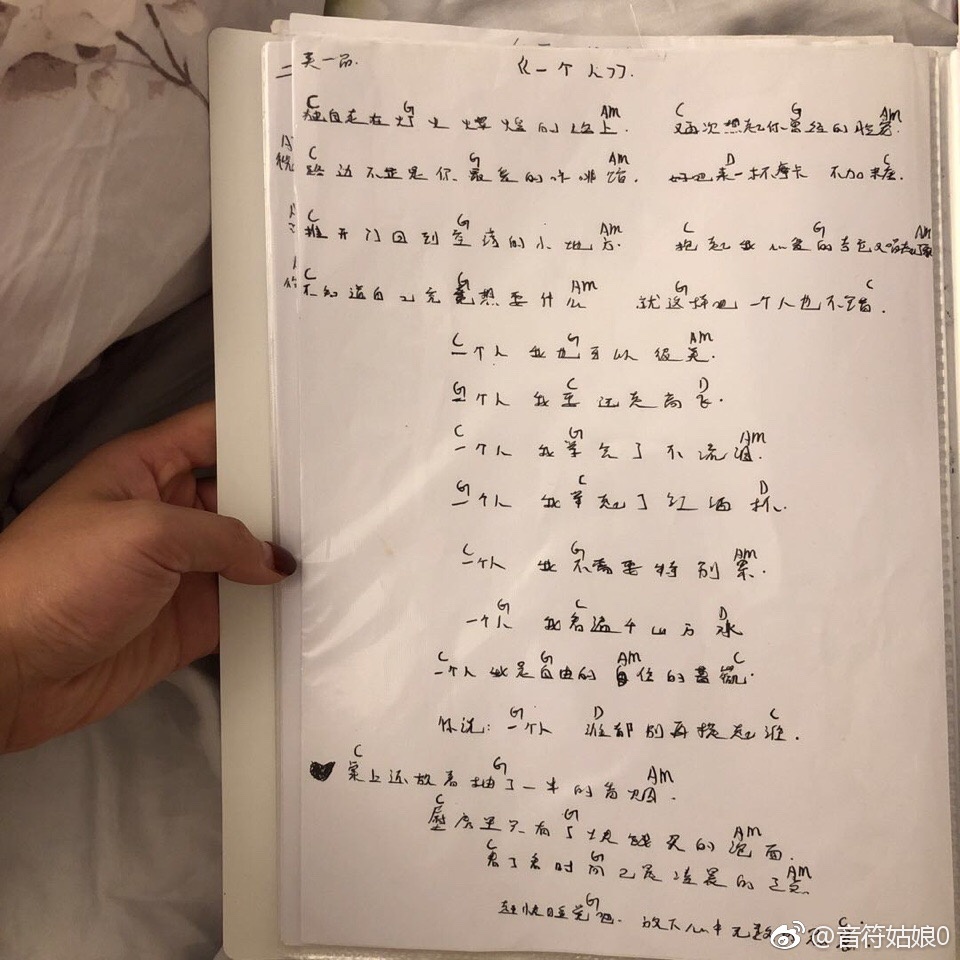 夹一品. 《一个人》
C G AM C G AM
独自走在灯火辉煌的路上. 又再次想起你曾经的脸旁.
C G AM D C
路边不正是你最爱的咖啡馆. 好吧来一杯摩卡 不加米糖.
C G AM C G AM
推开门回到空荡的小地方. 抱起我心爱的吉它又唱起了歌
C G AM G C
不知道自己究竟想要什么 就这样吧一个人也不错.
C G AM
一个人 我也可以很美.
G C D
一个人 我要远走高飞.
C G AM
一个人 我学会了不流泪.
G C D
一个人 我举起了红酒杯.
C G AM
一个人 我不需要特别累.
G C D
一个人 我看遍千山万水
C G AM C
一个人我是自由的自在的蔷薇.
G D C
你说:一个人 谁都别再提起谁.
C G AM
桌上还放着抽了一半的香烟.
C G AM
壁房里只有几块钱买的泡面.
C G AM
看了看时间已是凌晨的三点
G C
赶快睡觉吧. 放下心中无数
@音符姑娘0